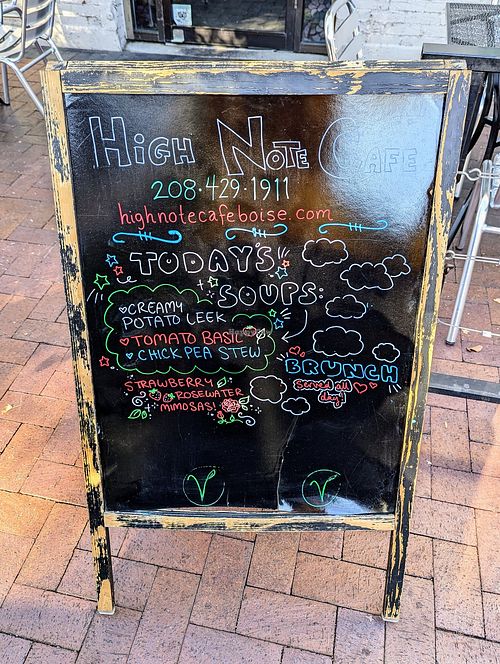 HIGH NOTE CAFE
208·429·1911
highnotecafeboise.com
TODAY'S
SOUPS:
CREAMY
POTATO LEEK
TOMATO BASIL
CHICK PEA STEW
BRUNCH
served all
day!
STRAWBERRY
ROSEWATER
MIMOSAS!